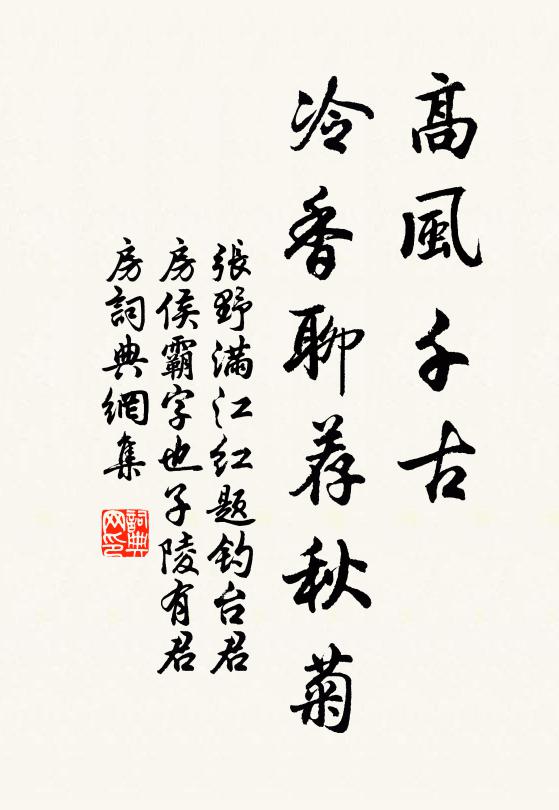 高風千古
冷香聊荐秋菊
張野滿江红題钓台君
房侯霸字也子陵有君
房詞典網集
詞典网印